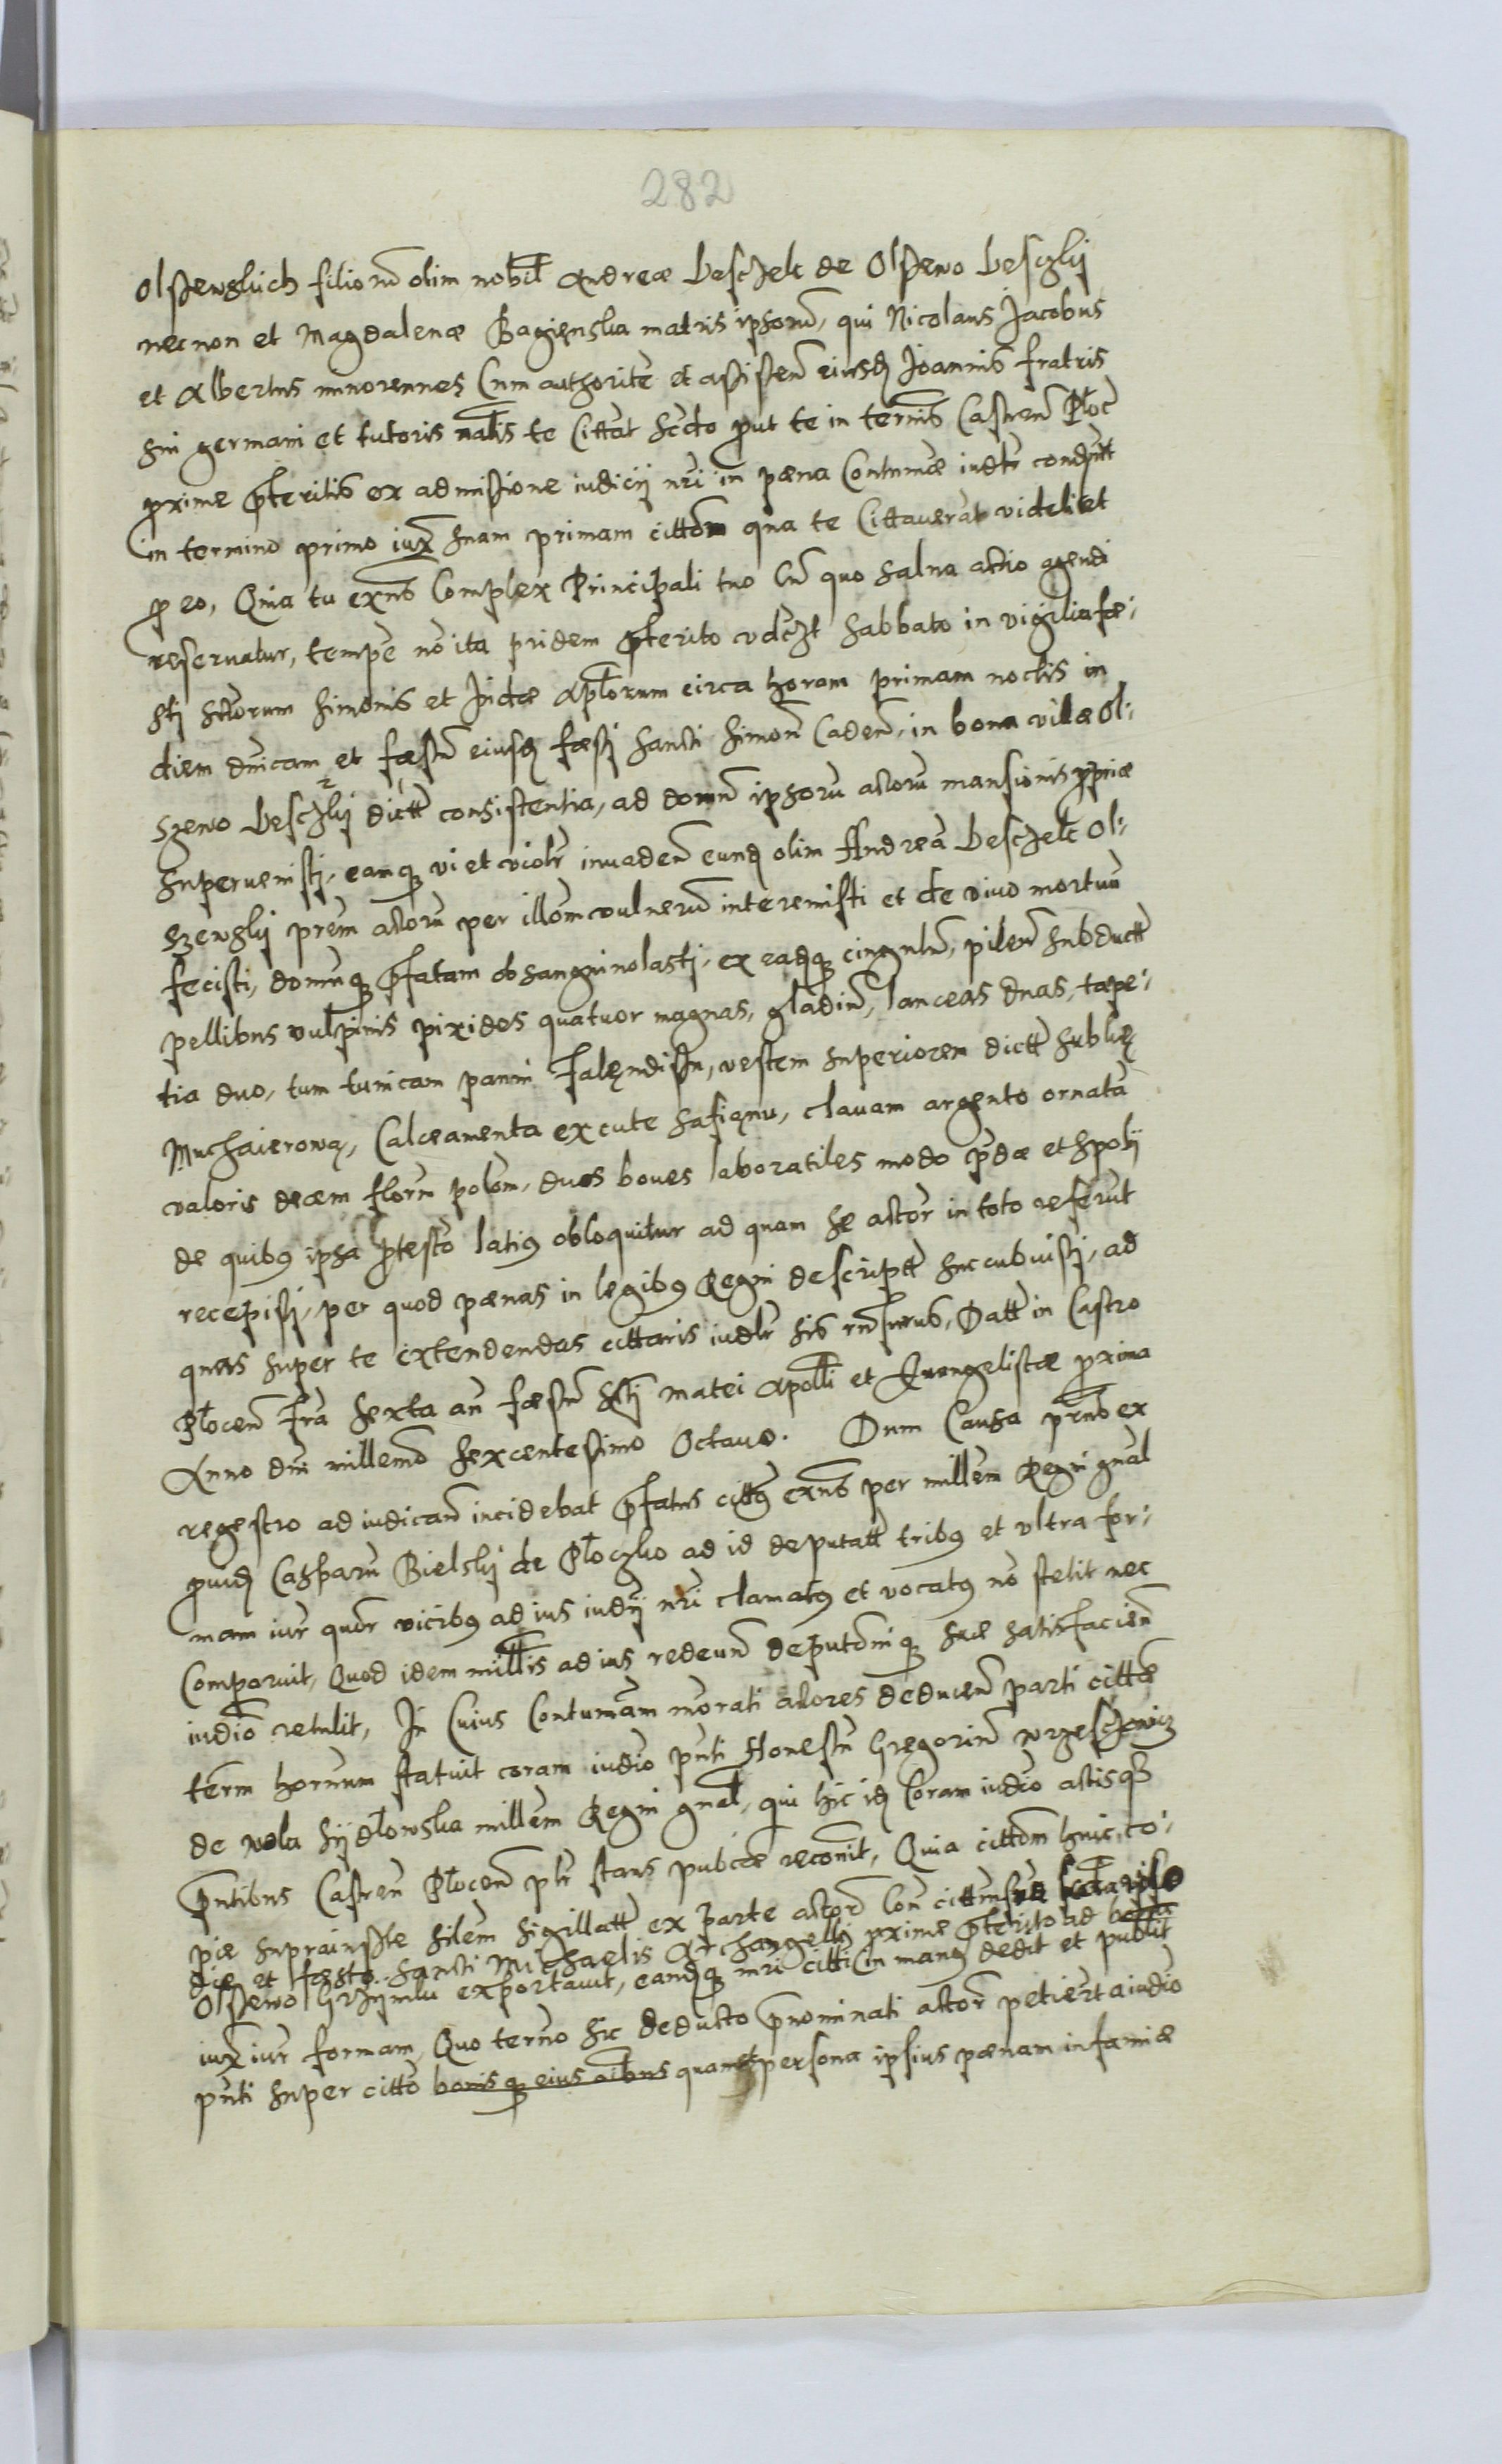 282
Olszewskich filiorū olim nobil Andreæ Lesczek de Olszewo Lesczki
necnon et Magdalenæ Bagienska matris ipsorū, qui Nicolaus Jacobus
et Albertus minorennes Cum authoritē et assistēn eiusd Joannis fratris
sui germani et tutoris nalis te Cittāt scdo put te in termis Castren Płoc
pxime pteritis ex admissione iudicij nri in pæna Contumāe iudtr condpntt
in termino primo iux suam primam cittōm qua te Cittaverat videlicet
p eo, Quia tu exns Complex Principali tuo Cū quo salua actio agendi
reseruatur, tempe nō ita pridem pterito vdczt sabbato in vigilia fæ-
sti sctorum Simonis et Judæ Aplorum circa horam primam noctis in
diem dnicam et fæstū eiusd fæsti Sancti Simon Caden, in bona villæ Ol-
szewo Lesczki dictt consistentia, ad domū ipsorū actorū mansionis ppriæ
superuenisti, eamq vi et violr inuaden eund olim Andreā Lesczek Ol-
szewski prēm actorū per illōm vulnerū interemisti et de viuo mortuū
fecisti, domūq pfatam obsanguinolasti, ex eadq cingulū, pileū subductt
pellibus vulpinis pixides quatuor magnas, gladiū, lanceas duas, tape-
tia duo, tum tunicam panni Falęndisu, vestem superiorem dictt sublię
Muchaierową, Calceamenta ex cute safianu, clauam argento ornatā
valoris decem florm polom, duos boues laboratiles modo pdæ et spolij
de quibg ipsa ptestō latig obloquitur ad quam se actōr in toto referūt
recepisti, per quod pænas in legibg Regni descriptt succubuisti, ad
quas super te extendendas cittaris iudtr sis rnsurus, Datt in Castro
Płocen Fra sexta an fæstū Scti Matei Apolli et Euangelistæ pxima
Anno dni millemo sexcentesimo Octauo. Dum Causa prns ex
regestro ad iudicān incidebat pfatus cittg exns per millem Regni gnal
puid Casparū Bielski de Płoczko ad id deputatt tribg et vltra for-
mam iur quor vicibg ad ius iudij nri clamatg et vocatg nō stetit nec
Comparuit, Quod idem millis ad ius redeun deputōniq suæ satisfacien
iudio retulit, In Cuius Contumām morati actores deducen parti cittæ
term hornum statuit coram iudio pnti Honestū Gregoriū Wrzesczewicz
de Wola Sijdłowska millem Regni gnal, qui hic id Coram iudio actisq
pntibus Castren Płocen plr stans pubce reconit, Quia cittōm huic co-
piæ suprainsctæ silem sigillatt ex parte actor con
die et fæsto Sancti Michaelis Archangelli pxime pterito ad bona
Olszewo Grzijmki exportauit, eandq mri citti in mang dedit et publit
iux iur formam, Quo termo sic deducto pnominati actor petiert a iudio
pnti super citto bonisq eius oibus quam persona ipsius pænam infamiæ